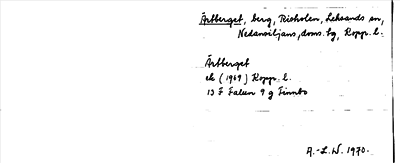 Ärtberget, berg, Risholen, Leksands sn,
Nedansiljans, doms. bg, Kopp. l.
Ärtberget
ek (1969) Kopp. l.
13 F Falun 9 g Finnbo
A.-L.W. 1970.